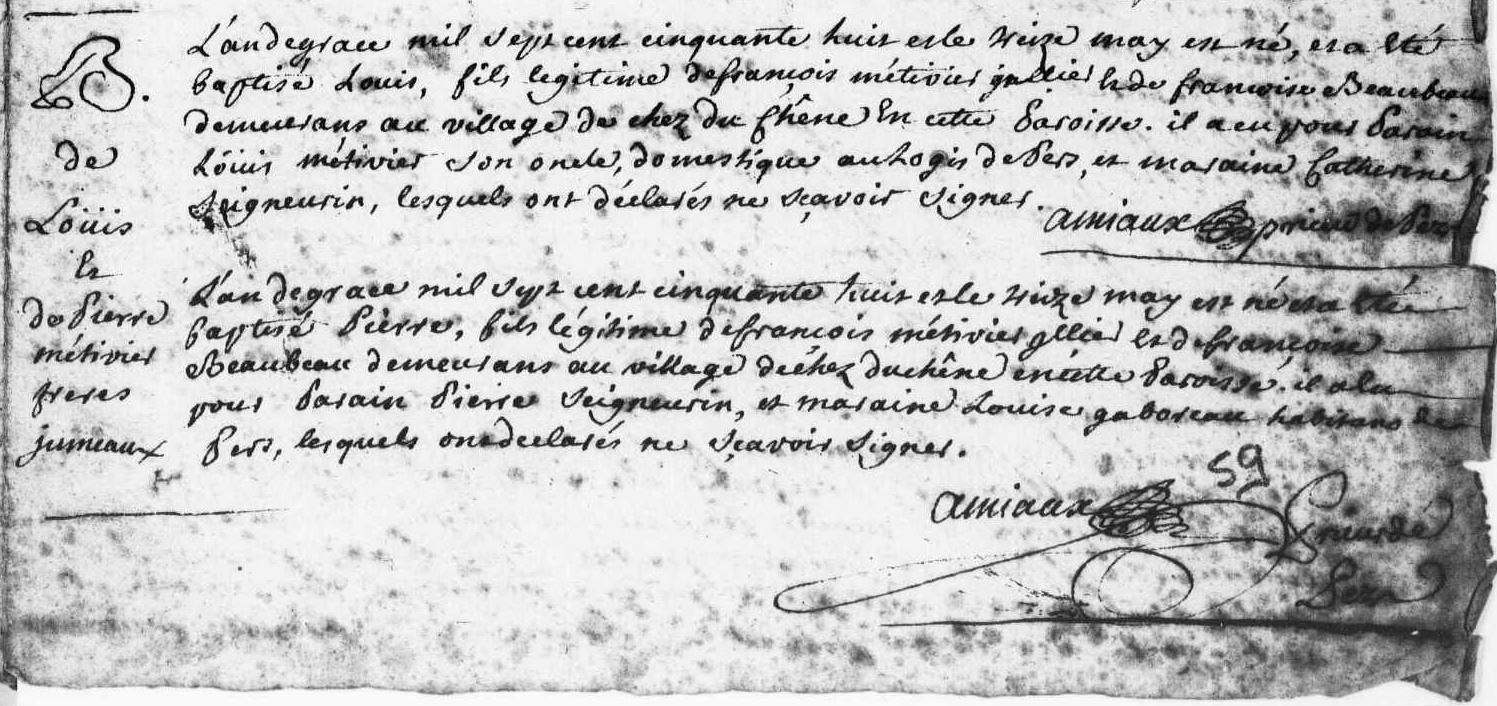 B.
de
Loüis
Et
de Pierre
métivier
freres
jumeaux
L'an de grace mil sept cent cinquante huit et le treize may est né, et a été
baptisé Louis, fils legitime de françois métivier et de francoise Beaubeau
demeurans au village de chez du Chêne En cette Paroisse. il a eu pour Parain
Loüis métivier son oncle, domestique au Logis de Pers, et maraine Catherine
Seigneurin, lesquels ont déclarés ne sçavoir signer.
amiaux prieur de Pers
L'an de grace mil sept cent cinquante huit et le treize may est né et a été
baptisé Pierre, fils légitime de francois métivier et de françoise
Beaubeau demeurans au village de chez du chêne en cette Paroisse. il a Eu
pour Parain Pierre Seigneurin, et maraine Louise gaboreau habitans de
Pers, lesquels ont declarés ne sçavoir signer.
59
amiaux Prieur de
Pers